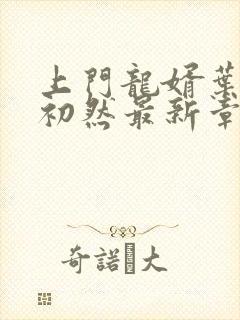 上門龍婿葉
初然最新章
奇諾 大